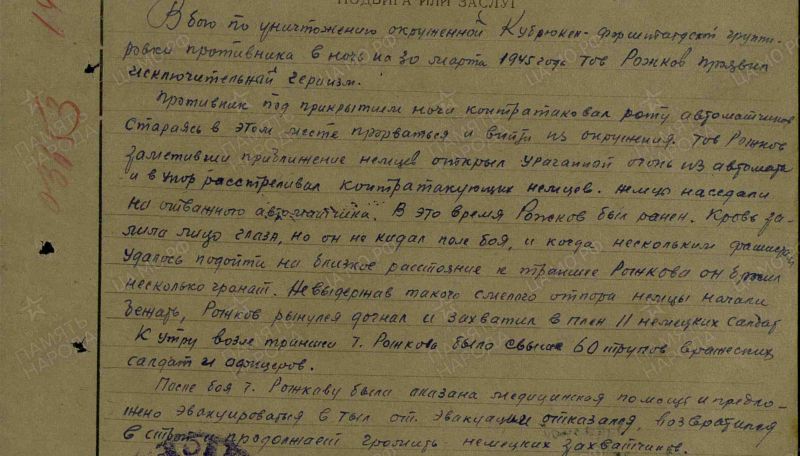 ПОДВИГА ИЛИ ЗАСЛУГ
В бою по уничтожению окруженной Кубрюкен-форштадской группи-
ровки противника в ночь на 30 марта 1945 года тов Рожков проявил
исключительный героизм.
Противник под прикрытием ночи контратаковал роту автоматчиков
Стараясь в этом месте прорваться и выйти из окружения. тов Рожков
заметивши приближение немцев открыл ураганный огонь из автомата
и в упор расстреливал контратакующих немцев. Немцы наседали
на отважного автоматчика. В это время Рожков был ранен. Кровь за-
лила лицо глаза, но он не кидал поле боя, и когда нескольким фашистам
удалось подойти на близкое расстояние к траншее Рожкова он бросил
несколько гранат. Не выдержав такого смелого отпора немцы начали
бежать, Рожков рынулся догнал и захватил в плен 11 немецких солдат
К утру возле траншеи т. Рожкова было свыше 60 трупов вражеских
солдат и офицеров.
После боя т. Рожкаву была оказана медицинская помощь и предло-
жено эвакуироваться в тыл от. эвакуации отказался, возвратился
в строй и продолжает громить немецких захватчиков.